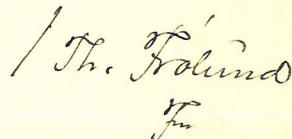 / Th. Frölund
Fm